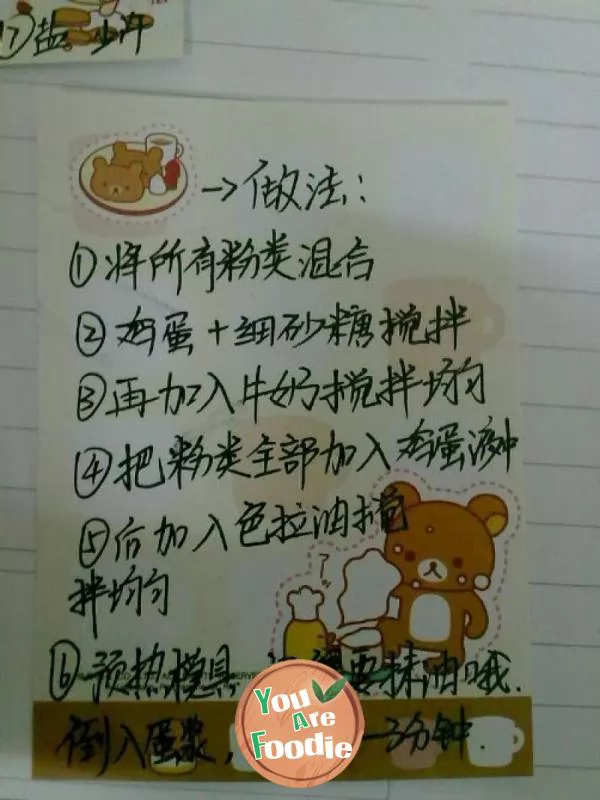 ⑦盐 少许
→做法：
①将所有粉类混合
②鸡蛋+细砂糖搅拌
③再加入牛奶搅拌均匀
④把粉类全部加入鸡蛋液中
⑤后加入色拉油搅
拌均匀
⑥预热模具 要抹油哦.
倒入蛋浆， 3分钟.
You
Are
Foodie